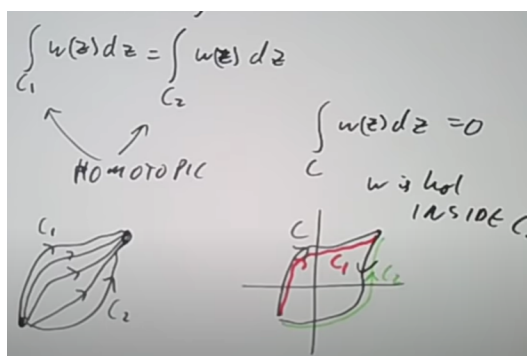 ∫_{C₁} w(z) dz = ∫_{C₂} w(z) dz
HOMOTOPIC
∫_C w(z) dz = 0
w is hol
INSIDE C.
C₁
C₂
C
C₁
C₂